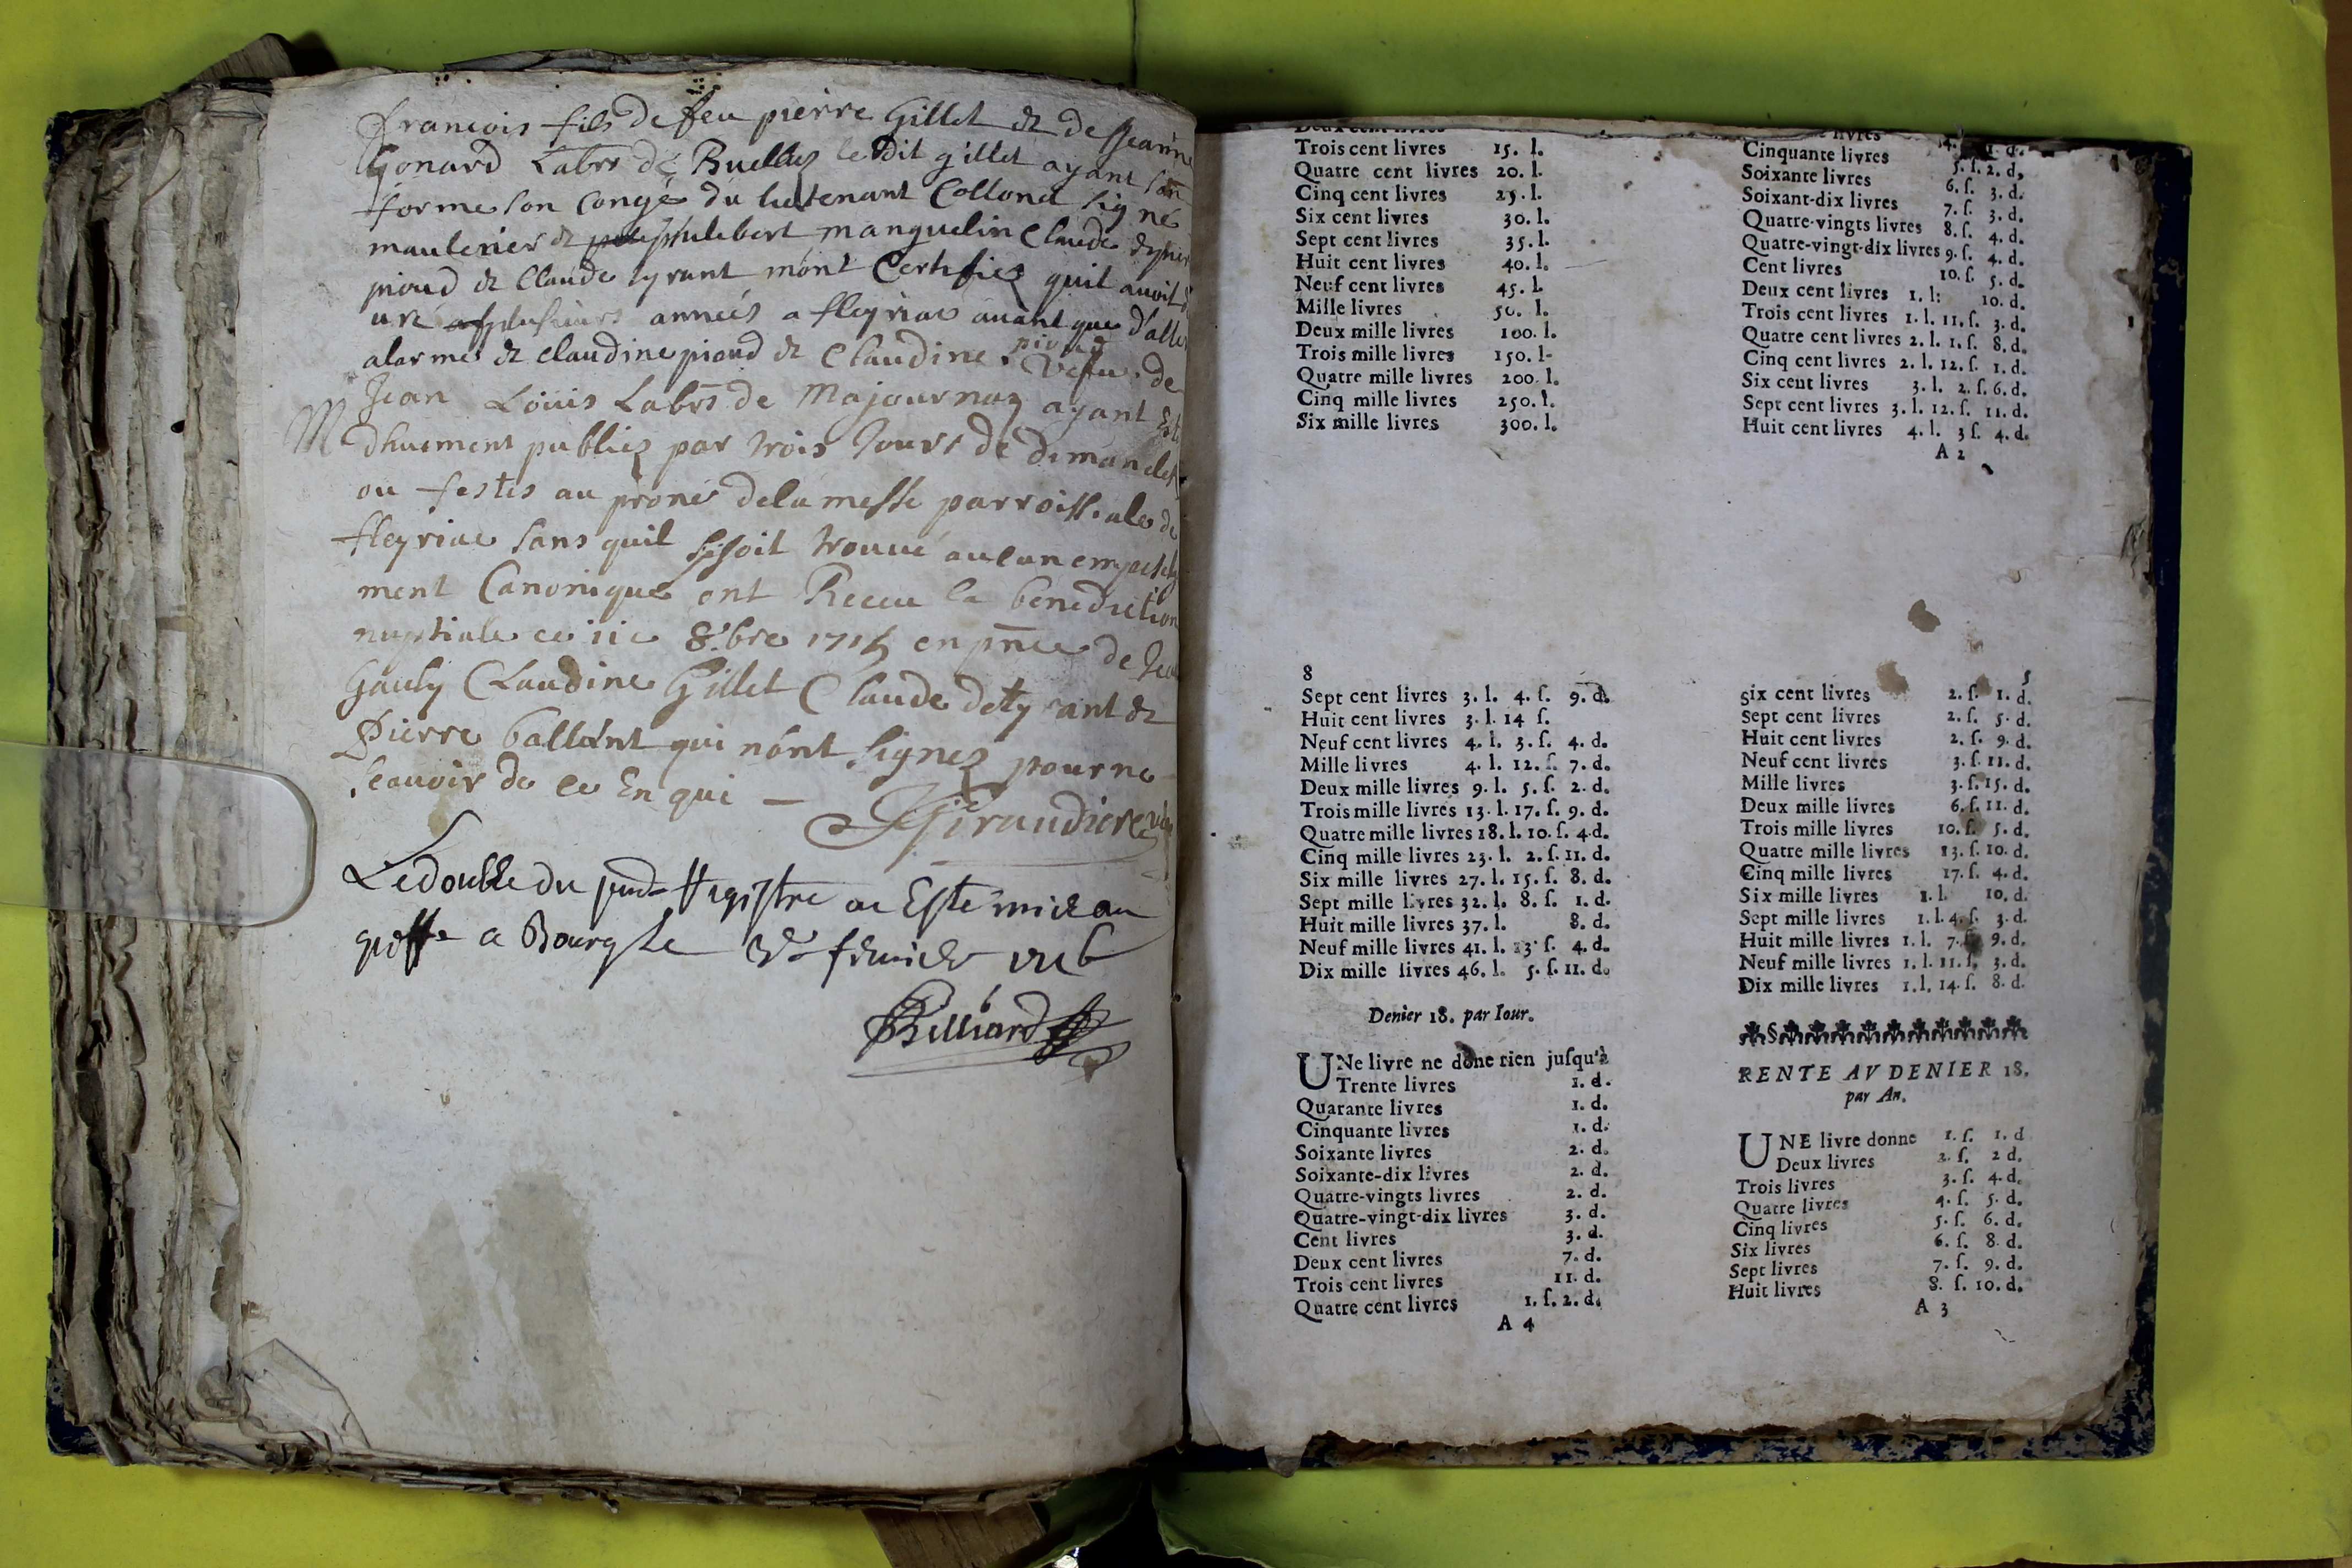 françois fils de feu pierre Gillet & de Jeanne
Gonard Labrs de Buellas ledit gillet ayant
forme son congé du lieutenant Collond signé
maulevrier & philibert manguelin Claude
pioud & Claude tyrant mònt Certifiez quil auoit
plusieurs années a fleyriac auant que d'aller
alarmes & claudine pioud & Claudine pioud vefue de
Jean Loüis Labrs de Majournaz ayant Esté
M
dhuement publiez par trois Jours de dimanches
ou festes au prone dela messe parroissiale de
fleyriac sans quil se soit trouué aulcun empesche
ment Canonique ont Receu la benediction
nuptiale ce iie 8.bre 1715 en pnce de
Gauly Claudine Gillet Claude detyrant &
Pierre ballant qui nònt signez pour ne
scauoir de ce Enqui —
Giraudiere
Le double du Registre ae Esté mis au
greffe a Bourg Le feurier
Billiard
Deux cent livres
Trois cent livres 15. l.
Quatre cent livres 20. l.
Cinq cent livres 25. l.
Six cent livres 30. l.
Sept cent livres 35. l.
Huit cent livres 40. l.
Neuf cent livres 45. l.
Mille livres 50. l.
Deux mille livres 100. l.
Trois mille livres 150. l.
Quatre mille livres 200. l.
Cinq mille livres 250. l.
Six mille livres 300. l.
livres
Cinquante livres 5. ſ. 2. d,
Soixante livres 6. ſ. 3. d.
Soixant-dix livres 7. ſ. 3. d.
Quatre-vingts livres 8. ſ. 4. d.
Quatre-vingt-dix livres 9. ſ. 4. d.
Cent livres 10. ſ. 5. d.
Deux cent livres 1. l: 10. d.
Trois cent livres 1. l. 11. ſ. 3. d.
Quatre cent livres 2. l. 1. ſ. 8. d.
Cinq cent livres 2. l. 12. ſ. 1. d.
Six cent livres 3. l. 2. ſ. 6. d.
Sept cent livres 3. l. 12. ſ. 11. d.
Huit cent livres 4. l. 3 ſ. 4. d.
A 2
8
Sept cent livres 3. l. 4. ſ. 9. d.
Huit cent livres 3. l. 14 ſ.
Neuf cent livres 4. l. 3. ſ. 4. d.
Mille livres 4. l. 12. ſ. 7. d.
Deux mille livres 9. l. 5. ſ. 2. d.
Trois mille livres 13. l. 17. ſ. 9. d.
Quatre mille livres 18. l. 10. ſ. 4. d.
Cinq mille livres 23. l. 2. ſ. 11. d.
Six mille livres 27. l. 15. ſ. 8. d.
Sept mille livres 32. l. 8. ſ. 1. d.
Huit mille livres 37. l. 8. d.
Neuf mille livres 41. l. 13. ſ. 4. d.
Dix mille livres 46. l. 5. ſ. 11. d.
Denier 18. par Iour.
UNe livre ne done rien juſqu'à
Trente livres 1. d.
Quarante livres 1. d.
Cinquante livres 1. d.
Soixante livres 2. d.
Soixante-dix livres 2. d.
Quatre-vingts livres 2. d.
Quatre-vingt-dix livres 3. d.
Cent livres 3. d.
Deux cent livres 7. d.
Trois cent livres 11. d.
Quatre cent livres 1. ſ. 2. d.
A 4
5
six cent livres 2. ſ. 1. d.
Sept cent livres 2. ſ. 5. d.
Huit cent livres 2. ſ. 9. d.
Neuf cent livres 3. ſ. 11. d.
Mille livres 3. ſ. 15. d.
Deux mille livres 6. ſ. 11. d.
Trois mille livres 10. ſ. 5. d.
Quatre mille livres 13. ſ. 10. d.
Cinq mille livres 17. ſ. 4. d.
Six mille livres 1. l. 10. d.
Sept mille livres 1. l. 4. ſ. 3. d.
Huit mille livres 1. l. 7. ſ. 9. d.
Neuf mille livres 1. l. 11. ſ. 3. d.
Dix mille livres 1. l. 14. ſ. 8. d.
RENTE AV DENIER 18.
par An.
UNE livre donne 1. ſ. 1. d
Deux livres 2. ſ. 2 d.
Trois livres 3. ſ. 4. d.
Quatre livres 4. ſ. 5. d.
Cinq livres 5. ſ. 6. d.
Six livres 6. ſ. 8. d.
Sept livres 7. ſ. 9. d.
Huit livres 8. ſ. 10. d.
A 3